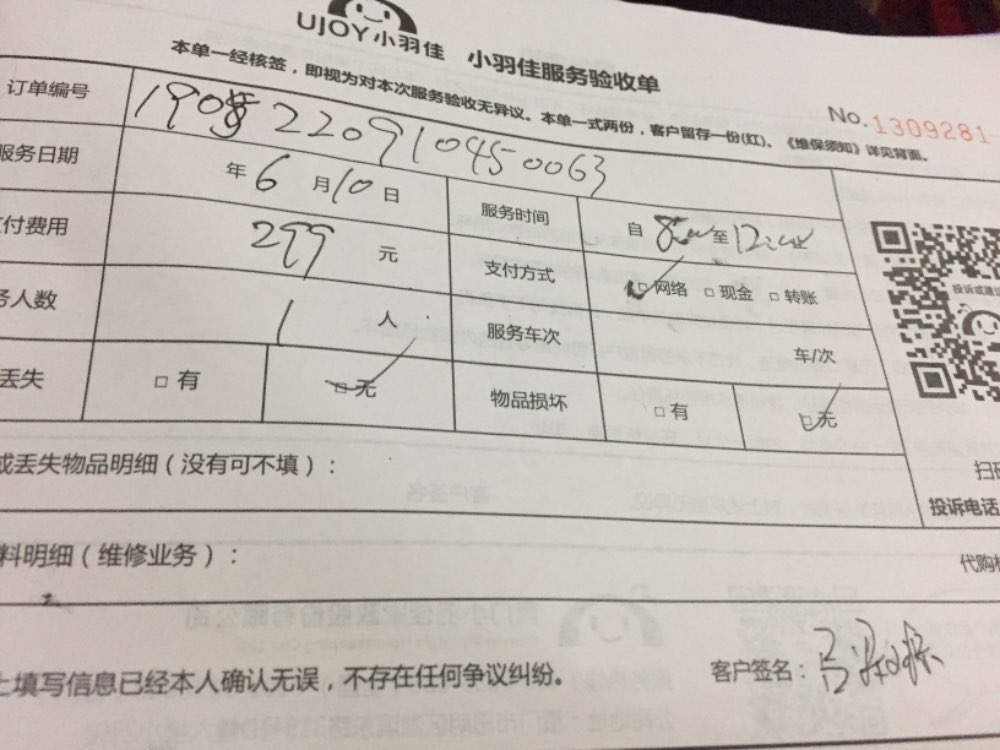 UJOY小羽佳 小羽佳服务验收单
本单一经核签，即视为对本次服务验收无异议。本单一式两份，客户留存一份(红)。《维保须知》详见背面。
No. 1309281
订单编号
服务日期 年 6 月 10 日 服务时间 自 至
付费用 299 元 支付方式 □ 网络 □ 现金 □ 转账
务人数 1 人 服务车次 车/次
丢失 □ 有 □ 无 物品损坏 □ 有 □ 无
投诉或建议
或丢失物品明细（没有可不填）：
扫码
投诉电话
料明细（维修业务）：
代购
上填写信息已经本人确认无误，不存在任何争议纠纷。 客户签名：